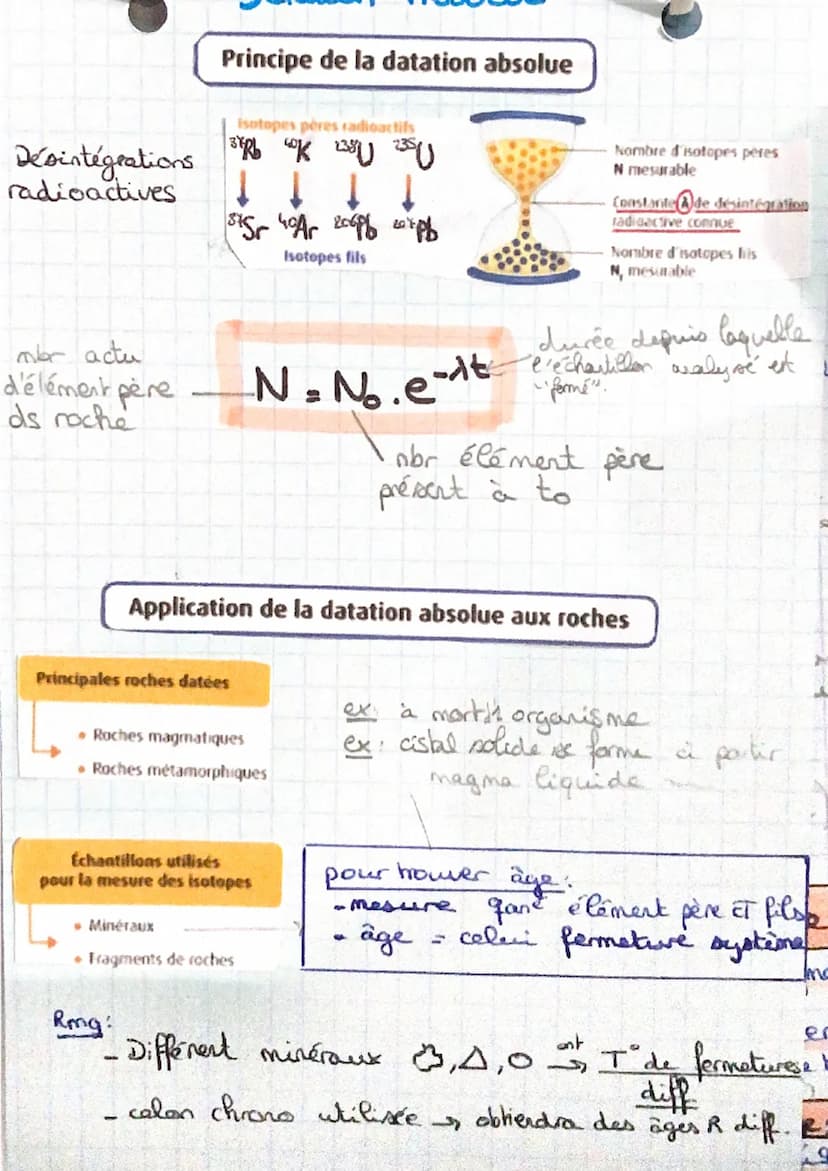 Principe de la datation absolue
Désintégrations
radioactives
Isotopes pères radioactifs
⁸⁷Rb ⁴⁰K ²³⁸U ²³⁵U
⁸⁷Sr ⁴⁰Ar ²⁰⁶Pb ²⁰⁷Pb
Isotopes fils
Nombre d'isotopes pères
N mesurable
Constante λ de désintégration
radioactive connue
Nombre d'isotopes fils
mesurable
nbr actu
d'élément père
ds roche
N = N₀ . e^-λt
durée depuis laquelle
l'échantillon analysé est
"formé".
nbr élément père
présent à to
Application de la datation absolue aux roches
Principales roches datées
• Roches magmatiques
• Roches métamorphiques
ex: à organisme
ex: cistal solide se forme à partir
magma liquide
Échantillons utilisés
pour la mesure des isotopes
• Minéraux
• Fragments de roches
pour trouver âge:
- mesure élément père ET fils
• âge = celui fermeture système
Rmq:
- Différent minéraux , △, O ont → T° de fermetures
diff
- selon chrono utilisée → obtiendra des âges R diff.